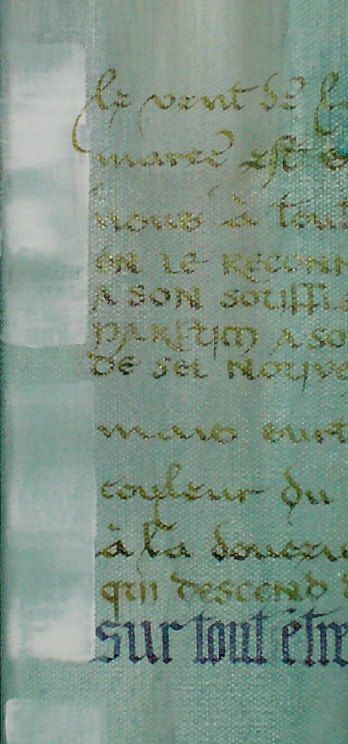 le vent de la
marée est
nous à tout
on le reconn
a son souffle
parfum a so
de sel nouve
mais surt
couleur du
à la douceu
qui descend d
surtout être